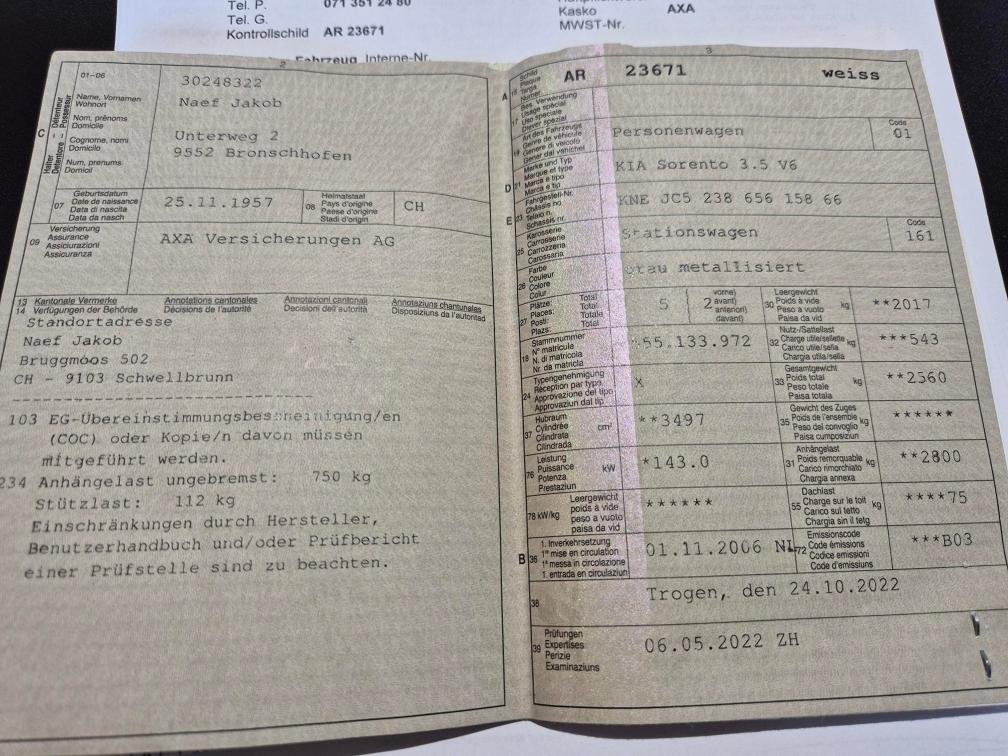 Tel. P. 071 351 24 80
Tel. G.
Kontrollschild AR 23671
Kasko AXA
MWST-Nr.
Fahrzeug Interne-Nr.
2
C
Détenteur Possessur
Halter Detentore
01-06
Name, Vornamen
Wohnort
Nom, prénoms
Domicile
Cognome, nomi
Domicilio
Num, prenums
Domicil
30248322
Naef Jakob
Unterweg 2
9552 Bronschhofen
07 Geburtsdatum
Date de naissance
Data di nascita
Data da nasch
25.11.1957
08 Heimatstaat
Pays d'origine
Paese d'origine
Stadi d'origin
CH
09 Versicherung
Assurance
Assicurazioni
Assicuranza
AXA Versicherungen AG
13 Kantonale Vermerke Annotations cantonales Annotazioni cantonali Annotaziuns chantunalas
14 Verfügungen der Behörde Décisions de l'autorité Decisioni dell'autorità Disposiziuns da l'autoritad
Standortadresse
Naef Jakob
Bruggmoos 502
CH - 9103 Schwellbrunn
103 EG-Übereinstimmungsbescheinigung/en
(COC) oder Kopie/n davon müssen
mitgeführt werden.
234 Anhängelast ungebremst: 750 kg
Stützlast: 112 kg
Einschränkungen durch Hersteller,
Benutzerhandbuch und/oder Prüfbericht
einer Prüfstelle sind zu beachten.
3
A 15 Schild
Plaque
Targa
Numer
AR 23671 weiss
17 Bes. Verwendung
Usage spécial
Uso speciale
Diever spezial
19 Art des Fahrzeugs
Genre de véhicule
Genere di veicolo
Gener dal vehichel
Personenwagen
Code
01
D 21 Marke und Typ
Marque et type
Marca e tipo
Marca e tip
KIA Sorento 3.5 V6
E 23 Fahrgestell-Nr.
Châssis no
Telaio n.
Schassis nr.
KNE JC5 238 656 158 66
25 Karosserie
Carrosserie
Carrozzeria
Carossaria
Stationswagen
Code
161
26 Farbe
Couleur
Colore
Colur
grau metallisiert
27 Plätze: Total
Places: Total
Posti: Totale
Plazs: Total
5 2
vorne)
avant)
anteriori)
davant)
30 Leergewicht
Poids à vide
Peso a vuoto
Paisa da vid
kg
**2017
18 Stammnummer
N° matricule
N. di matricola
Nr. da matricla
55.133.972
32 Nutz-/Sattellast
Charge utile/sellette
Carico utile/sella
Chargia utila/sella
kg
***543
24 Typengenehmigung
Réception par type
Approvazione del tipo
Approvaziun dal tip
X
33 Gesamtgewicht
Poids total
Peso totale
Paisa totala
kg
**2560
37 Hubraum
Cylindrée
Cilindrata
Cilindrada
cm³
**3497
35 Gewicht des Zuges
Poids de l'ensemble
Peso del convoglio
Paisa cumposiziun
kg
******
76 Leistung
Puissance
Potenza
Prestaziun
kW
*143.0
31 Anhängelast
Poids remorquable
Carico rimorchiato
Chargia annexa
kg
**2800
78 kW/kg Leergewicht
poids à vide
peso a vuoto
paisa da vid
******
55 Dachlast
Charge sur le toit
Carico sul tetto
Chargia sin il tetg
kg
****75
B 36 1. Inverkehrsetzung
1re mise en circulation
1a messa in circolazione
1. entrada en circulaziun
01.11.2006 NL
72 Emissionscode
Code émissions
Codice emissioni
Code d'emissiuns
***B03
38
Trogen, den 24.10.2022
39 Prüfungen
Expertises
Perizie
Examinaziuns
06.05.2022 ZH